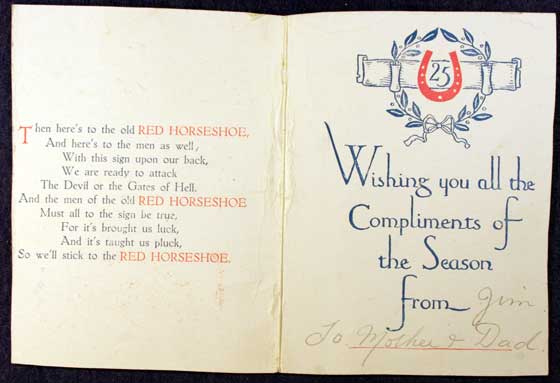 Then here's to the old RED HORSESHOE,
And here's to the men as well,
With this sign upon our back,
We are ready to attack
The Devil or the Gates of Hell.
And the men of the old RED HORSESHOE
Must all to the sign be true,
For it's brought us luck,
And it's taught us pluck,
So we'll stick to the RED HORSESHOE.
25
Wishing you all the
Compliments of
the Season
from Jim
To Mother & Dad.